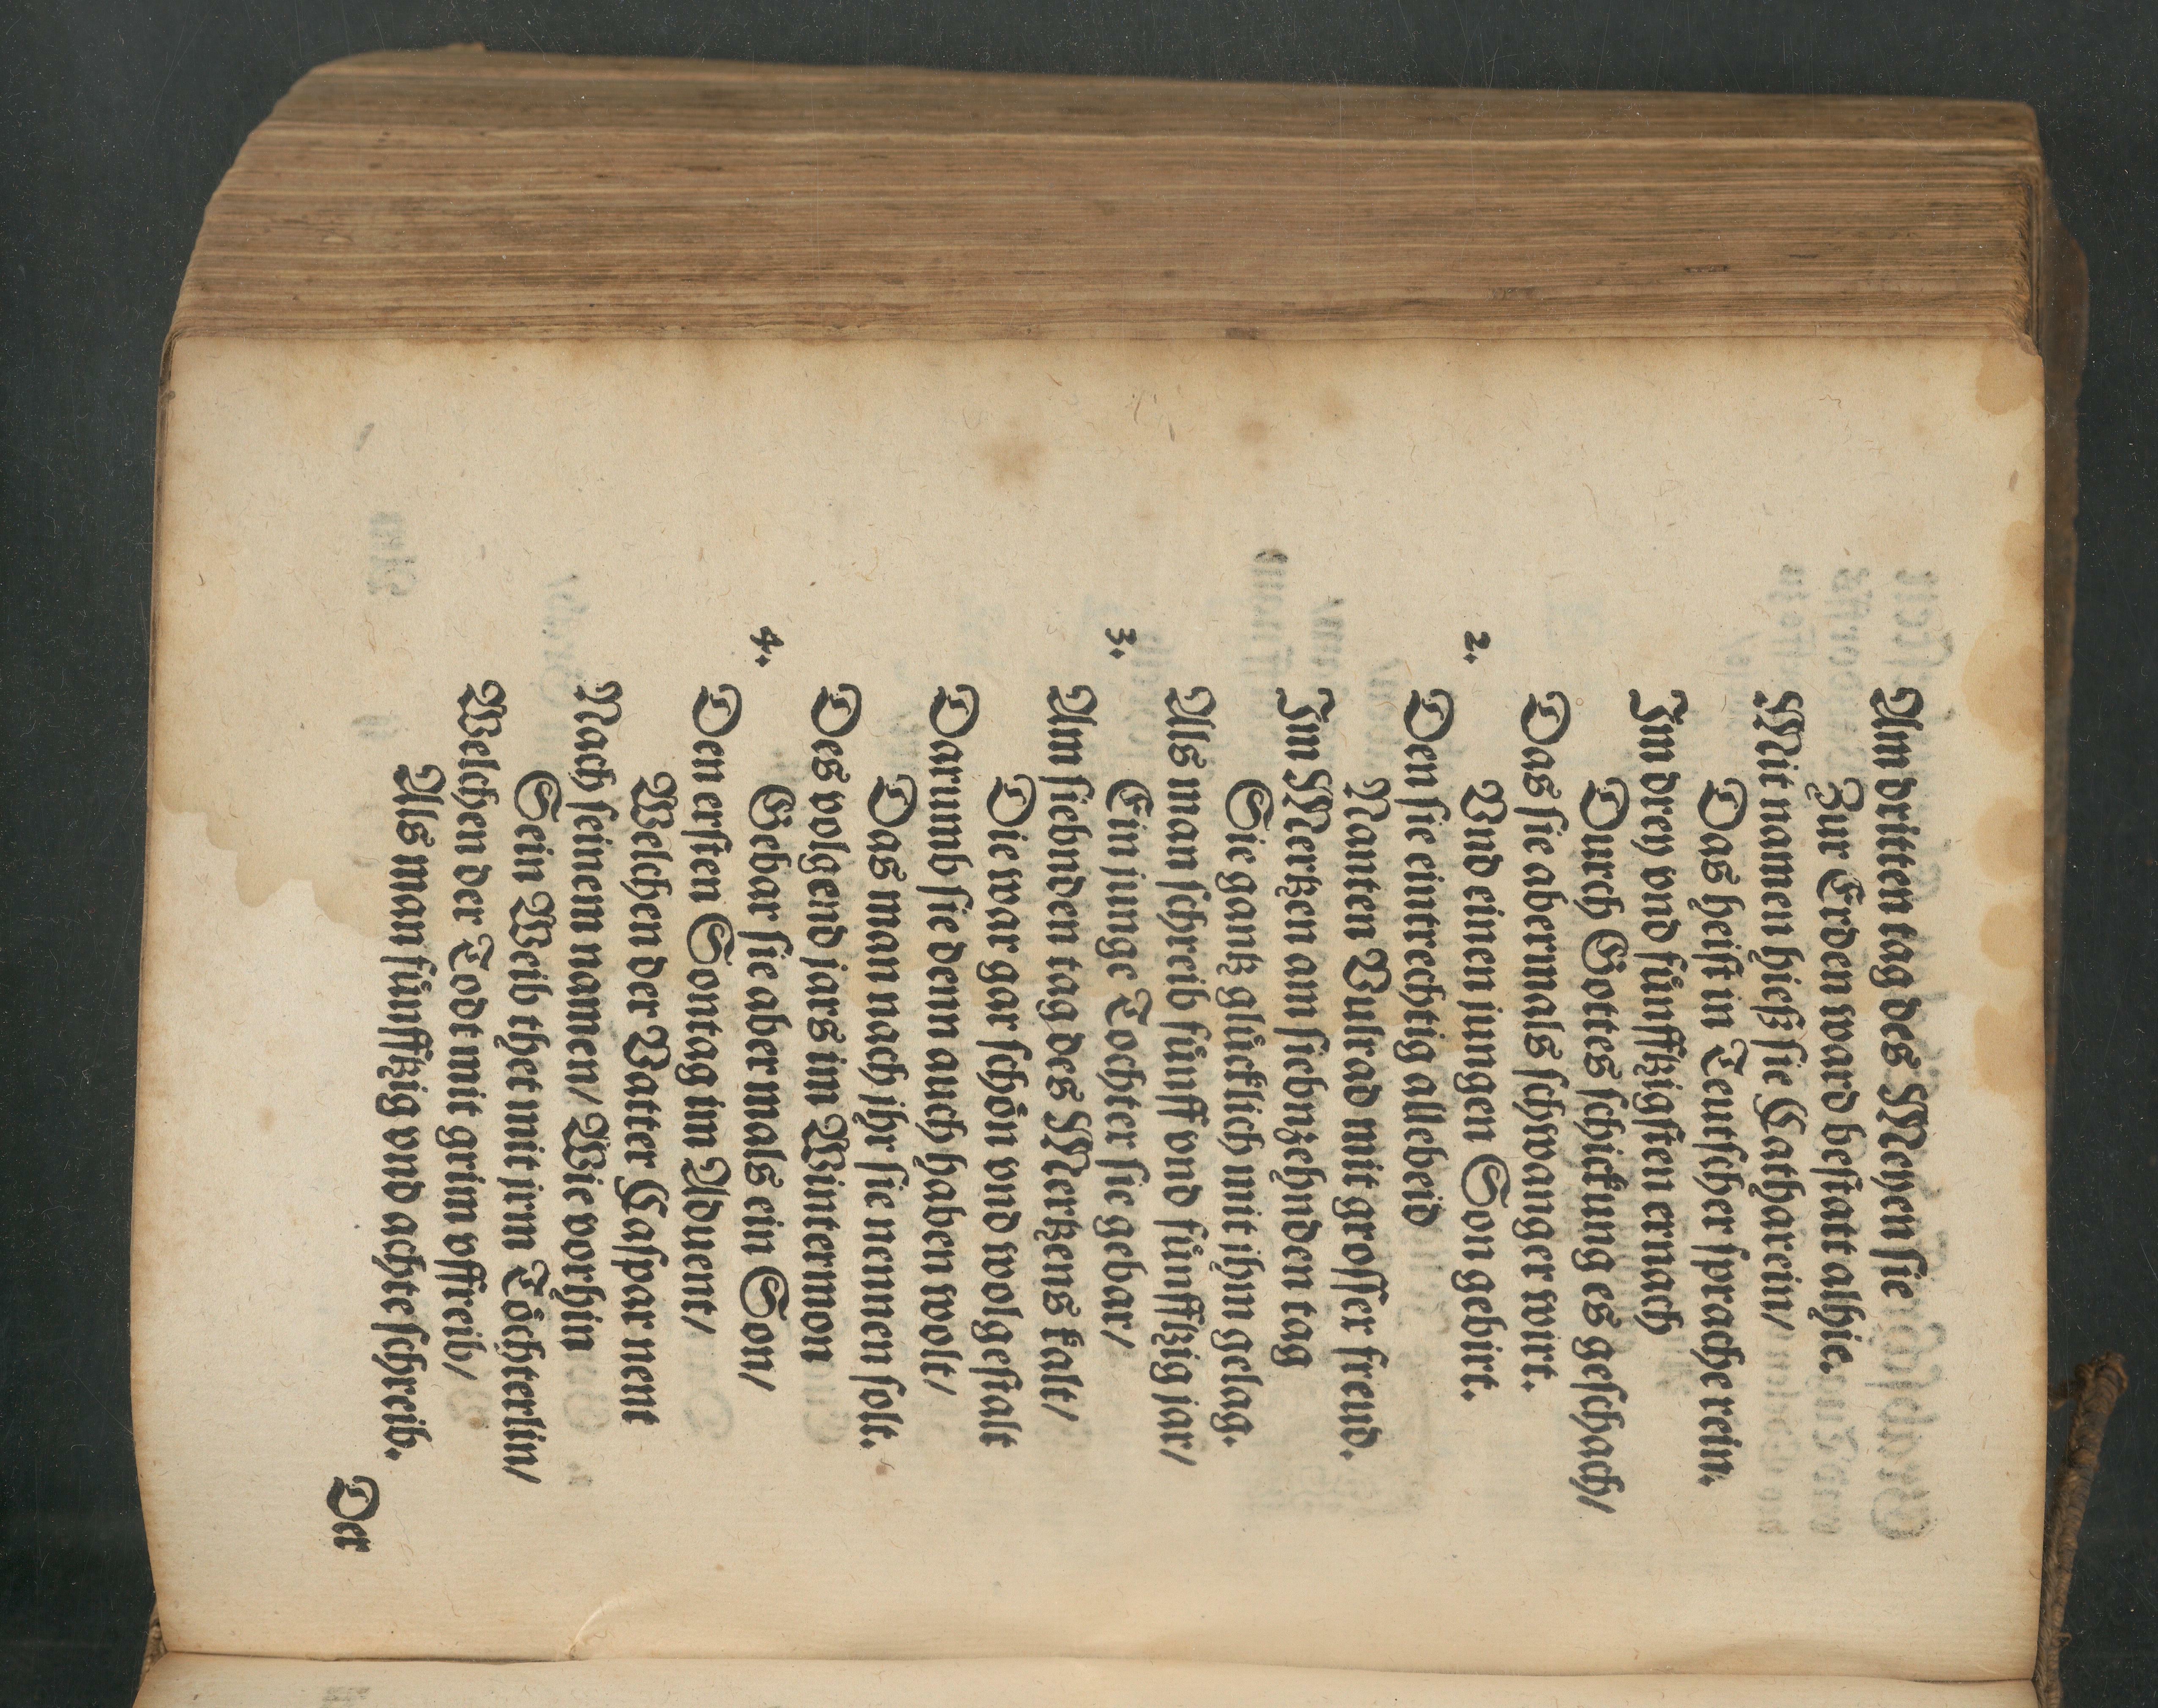 Am dritten tag des Meyen sie
Zur Erden ward bestatt alhie.
Mit namen hieß sie Catharein/
Das heist in Teutscher sprache rein.
Im drey vnd fünfftzigsten ernach
Durch Gottes schickung es geschach/
Das sie abermals schwanger wirt.
2. Vnd einen jungen Son gebirt.
Den sie eintrechtig alle beid
Nanten Vulrad mit grosser freud.
Im Mertzen am siebnzehnden tag
Sie gantz glücklich mit ihm gelag.
Als man schreib fünff vnd fünfftzig jar/
3. Ein junge Tochter sie gebar/
Am siebnden tag des Mertzens kalt/
Die war gar schön vnd wolgestalt
Darumb sie denn auch haben wolt/
Das man nach jhr sie nennen solt.
Des volgend jars im Wintermon
4. Gebar sie abermals ein Son/
Den ersten Sontag im Aduent/
Welchen der Vatter Caspar nent
Nach seinem namen/ Wie vorhin
Sein Weib thet mit jrm Töchterlin/
Welchen der Todt mit grim vffreib/
Als man fünfftzig vnd achte schreib.
Der